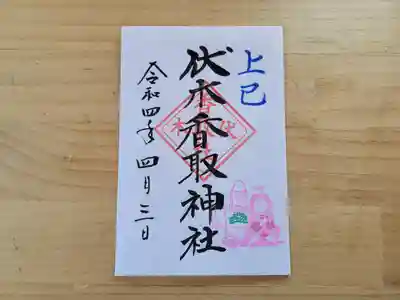 上巳
伏木香取神社
令和四年四月三日